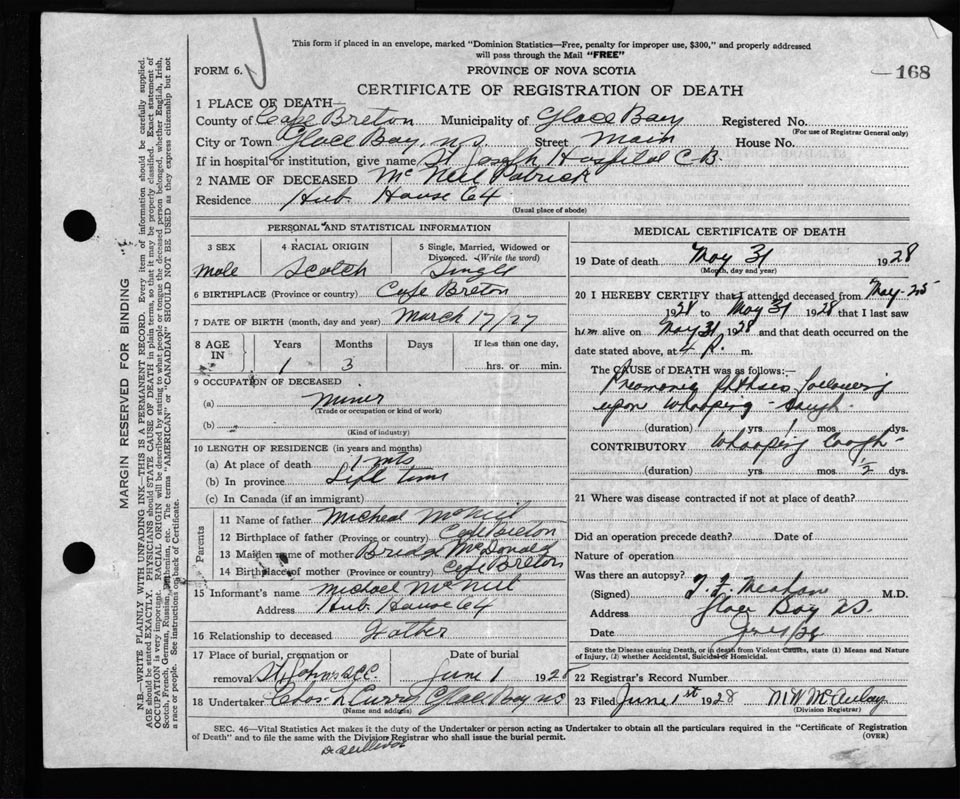 This form if placed in an envelope, marked "Dominion Statistics—Free, penalty for improper use, $300," and properly addressed
will pass through the Mail "FREE"
FORM 6.
PROVINCE OF NOVA SCOTIA
168
CERTIFICATE OF REGISTRATION OF DEATH
1 PLACE OF DEATH—
County of Cape Breton Municipality of Glace Bay Registered No.
(For use of Registrar General only)
City or Town Glace Bay, N.S. Street Main House No.
If in hospital or institution, give name St Joseph Hospital C.B.
2 NAME OF DECEASED McNeil Patrick
Residence Hub. House 64
(Usual place of abode)
PERSONAL AND STATISTICAL INFORMATION
3 SEX 4 RACIAL ORIGIN 5 Single, Married, Widowed or
Divorced. (Write the word)
Male Scotch Single
6 BIRTHPLACE (Province or country) Cape Breton
7 DATE OF BIRTH (month, day and year) March 17/27
8 AGE IN Years Months Days If less than one day,
1 3 hrs. or min.
9 OCCUPATION OF DECEASED
(a) Miner
(Trade or occupation or kind of work)
(b)
(Kind of industry)
10 LENGTH OF RESIDENCE (in years and months)
(a) At place of death 1
(b) In province Life time
(c) In Canada (if an immigrant)
Parents
11 Name of father Micheal McNeil
12 Birthplace of father (Province or country) Cape Breton
13 Maiden name of mother McDonald
14 Birthplace of mother (Province or country) Cape Breton
15 Informant's name Michael McNeil
Address Hub. House 64
16 Relationship to deceased Father
17 Place of burial, cremation or Date of burial
removal June 1 192
18 Undertaker Chas L Curry Glace Bay NS
(Name and address)
MEDICAL CERTIFICATE OF DEATH
19 Date of death May 31 1928
(Month, day and year)
20 I HEREBY CERTIFY that I attended deceased from May-25
1928 to May 31 1928 that I last saw
him alive on May 31 1928 and that death occurred on
date stated above, at 4 P. m.
The CAUSE of DEATH was as follows:—
following
upon whooping-cough.
(duration) yrs. 1 mos. dys.
CONTRIBUTORY Whooping Cough-
(duration) yrs. mos. 1/2 dys.
21 Where was disease contracted if not at place of death?
Did an operation precede death? Date of
Nature of operation
Was there an autopsy?
(Signed) M.D.
Address Glace Bay NS.
Date
State the Disease causing Death, or in death from Violent Causes, state (1) Means and Nature
of Injury, (2) whether Accidental, Suicidal or Homicidal.
22 Registrar's Record Number
23 Filed June 1st 1928
(Division Registrar)
SEC. 46—Vital Statistics Act makes it the duty of the Undertaker or person acting as Undertaker to obtain all the particulars required in the "Certificate of Registration
of Death" and to file the same with the Division Registrar who shall issue the burial permit.
(OVER)
MARGIN RESERVED FOR BINDING
N.B.—WRITE PLAINLY WITH UNFADING INK—THIS IS A PERMANENT RECORD. Every item of information should be carefully supplied.
AGE should be stated EXACTLY. PHYSICIANS should STATE CAUSE OF DEATH in plain terms, so that it may be properly classified. Exact statement of
OCCUPATION is very important. RACIAL ORIGIN will be described by stating to what people or tongue the deceased person belonged, whether English, Irish,
Scotch, French, German, Russian, Ruthenian, etc. The terms "AMERICAN" or "CANADIAN" SHOULD NOT BE USED as they express citizenship but not
a race or people. See instructions on back of Certificate.